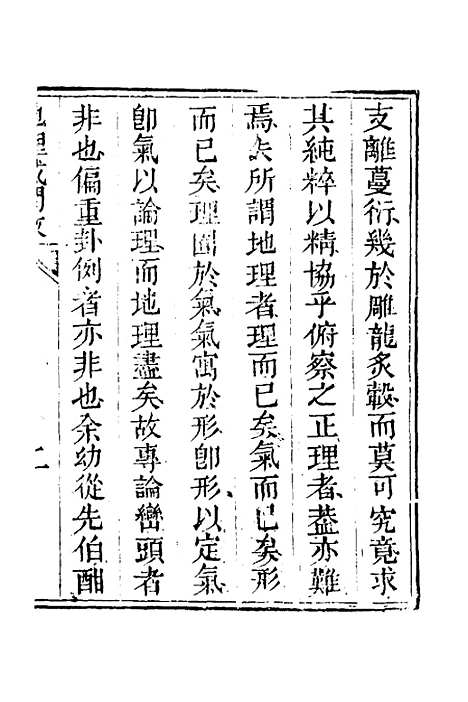 支離蔓衍幾於雕龍炙轂而莫可究竟求
其純粹以精協乎俯察之正理者蓋亦難
焉夫所謂地理者理而已矣氣而已矣形
而已矣理圄於氣氣寓於形卽形以定氣
卽氣以論理而地理盡矣故專論巒頭者
非也偏重卦例者亦非也余幼從先伯酣